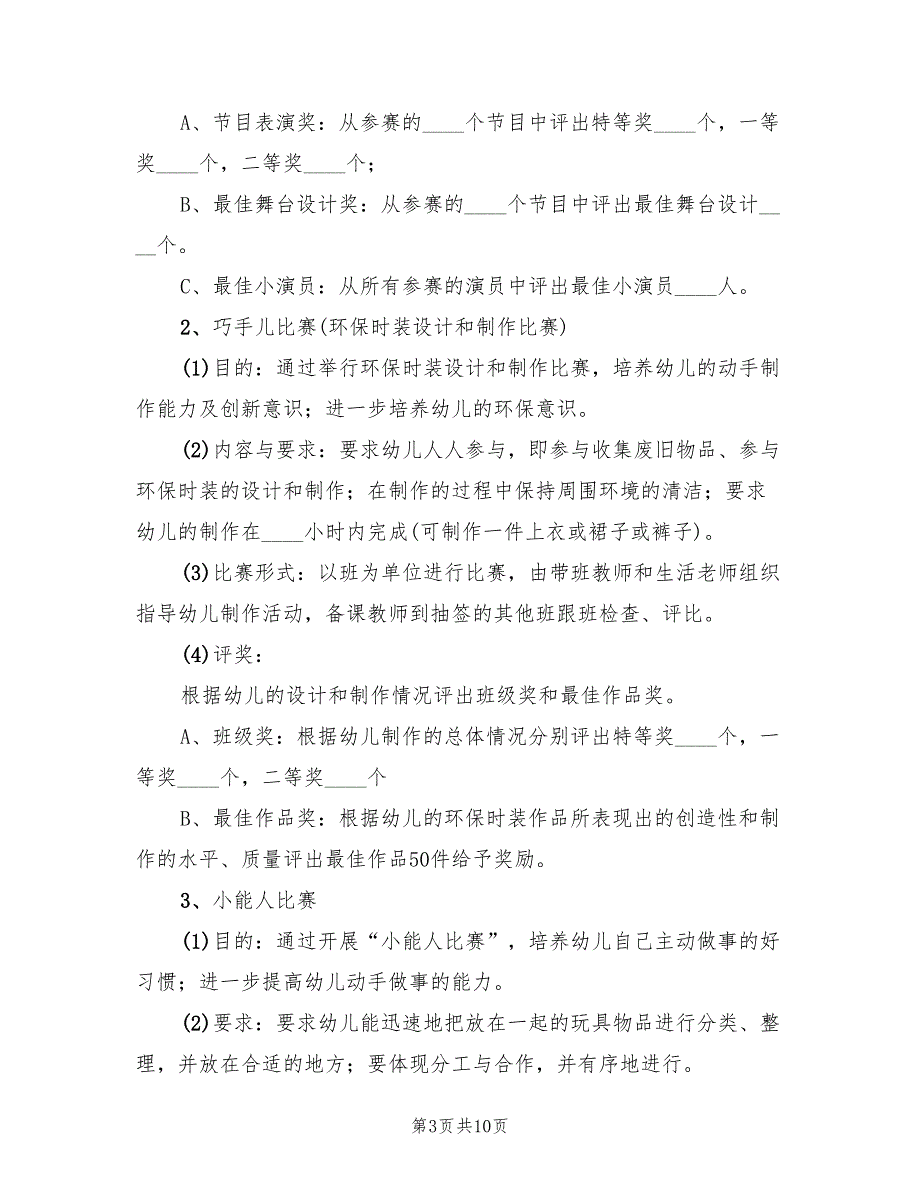 A、节目表演奖：从参赛的____个节目中评出特等奖____个，一等
奖____个，二等奖____个；
B、最佳舞台设计奖：从参赛的____个节目中评出最佳舞台设计__
__个。
C、最佳小演员：从所有参赛的演员中评出最佳小演员____人。
2、巧手儿比赛(环保时装设计和制作比赛)
(1)目的：通过举行环保时装设计和制作比赛，培养幼儿的动手制
作能力及创新意识；进一步培养幼儿的环保意识。
(2)内容与要求：要求幼儿人人参与，即参与收集废旧物品、参与
环保时装的设计和制作；在制作的过程中保持周围环境的清洁；要求
幼儿的制作在____小时内完成(可制作一件上衣或裙子或裤子)。
(3)比赛形式：以班为单位进行比赛，由带班教师和生活老师组织
指导幼儿制作活动，备课教师到抽签的其他班跟班检查、评比。
(4)评奖：
根据幼儿的设计和制作情况评出班级奖和最佳作品奖。
A、班级奖：根据幼儿制作的总体情况分别评出特等奖____个，一
等奖____个，二等奖____个
B、最佳作品奖：根据幼儿的环保时装作品所表现出的创造性和制
作的水平、质量评出最佳作品50件给予奖励。
3、小能人比赛
(1)目的：通过开展“小能人比赛”，培养幼儿自己主动做事的好
习惯；进一步提高幼儿动手做事的能力。
(2)要求：要求幼儿能迅速地把放在一起的玩具物品进行分类、整
理，并放在合适的地方；要体现分工与合作，并有序地进行。
第3页共10页